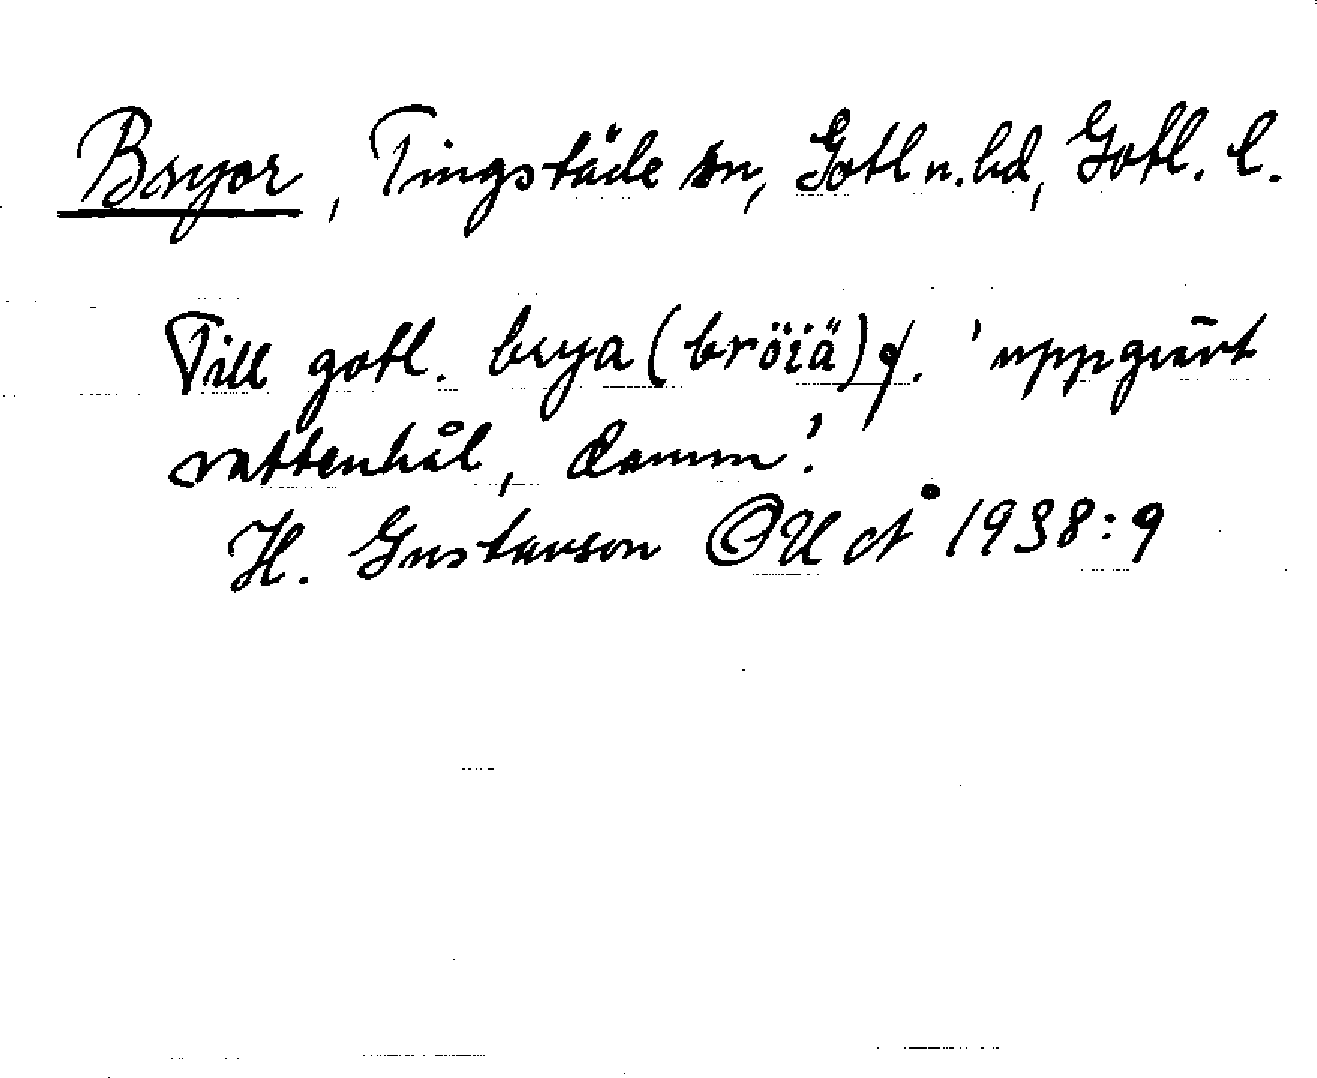 Bryor, Tingstäde sn, Gotl n. hd, Gotl. l.
Till gotl. brya (bröiä) f. 'uppgrävt
vattenhål, damm'.
H. Gustavson OUÅ 1938:9